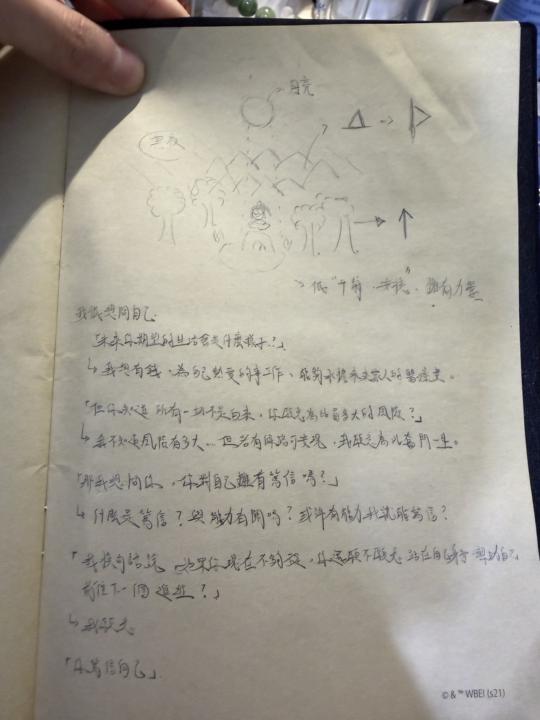 月亮
黑夜
低"平靜、安穩"、擁有力量
我低想問自己
「未來你期望的生活會是什麼樣子？」
↳ 我想有錢、為自己熱愛的事工作、能夠承擔未來家人的
「但你知道 所有一切不是白來，你願意為此冒多大的風險？」
↳ 我不知道風險有多大...但若有研路可走現，我願意為此奮鬥一生。
「那我想問你，你對自己擁有篤信嗎？」
↳ 什麼是篤信？與能力有關嗎？或許有能力我就能篤信？
「我換句話說 如果你現在不夠強，你還願不願意 站在自己身旁 幫助自己
前往下一個進一？」
↳ 我願意
「你篤信自己」.
©&™WBEI (s21)